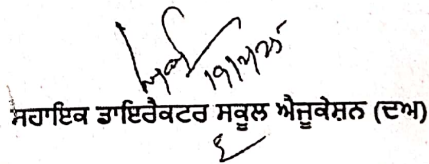 ਸਹਾਇਕ ਡਾਇਰੈਕਟਰ ਸਕੂਲ ਐਜੂਕੇਸ਼ਨ (ਦਅ)